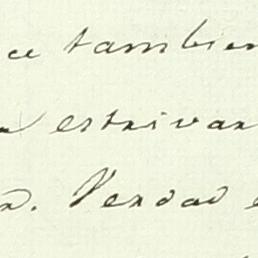 ce tambien
estrivan
n. Verdad e